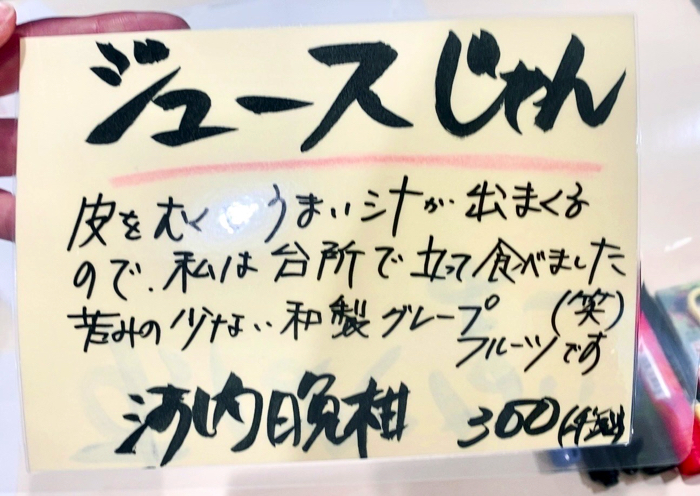 ジュースじゃん
皮をむくとうまい汁が出まくる
ので、私は台所で立って食べました
(笑)
苦みの少ない和製グレープ
フルーツです
河内晩柑 300